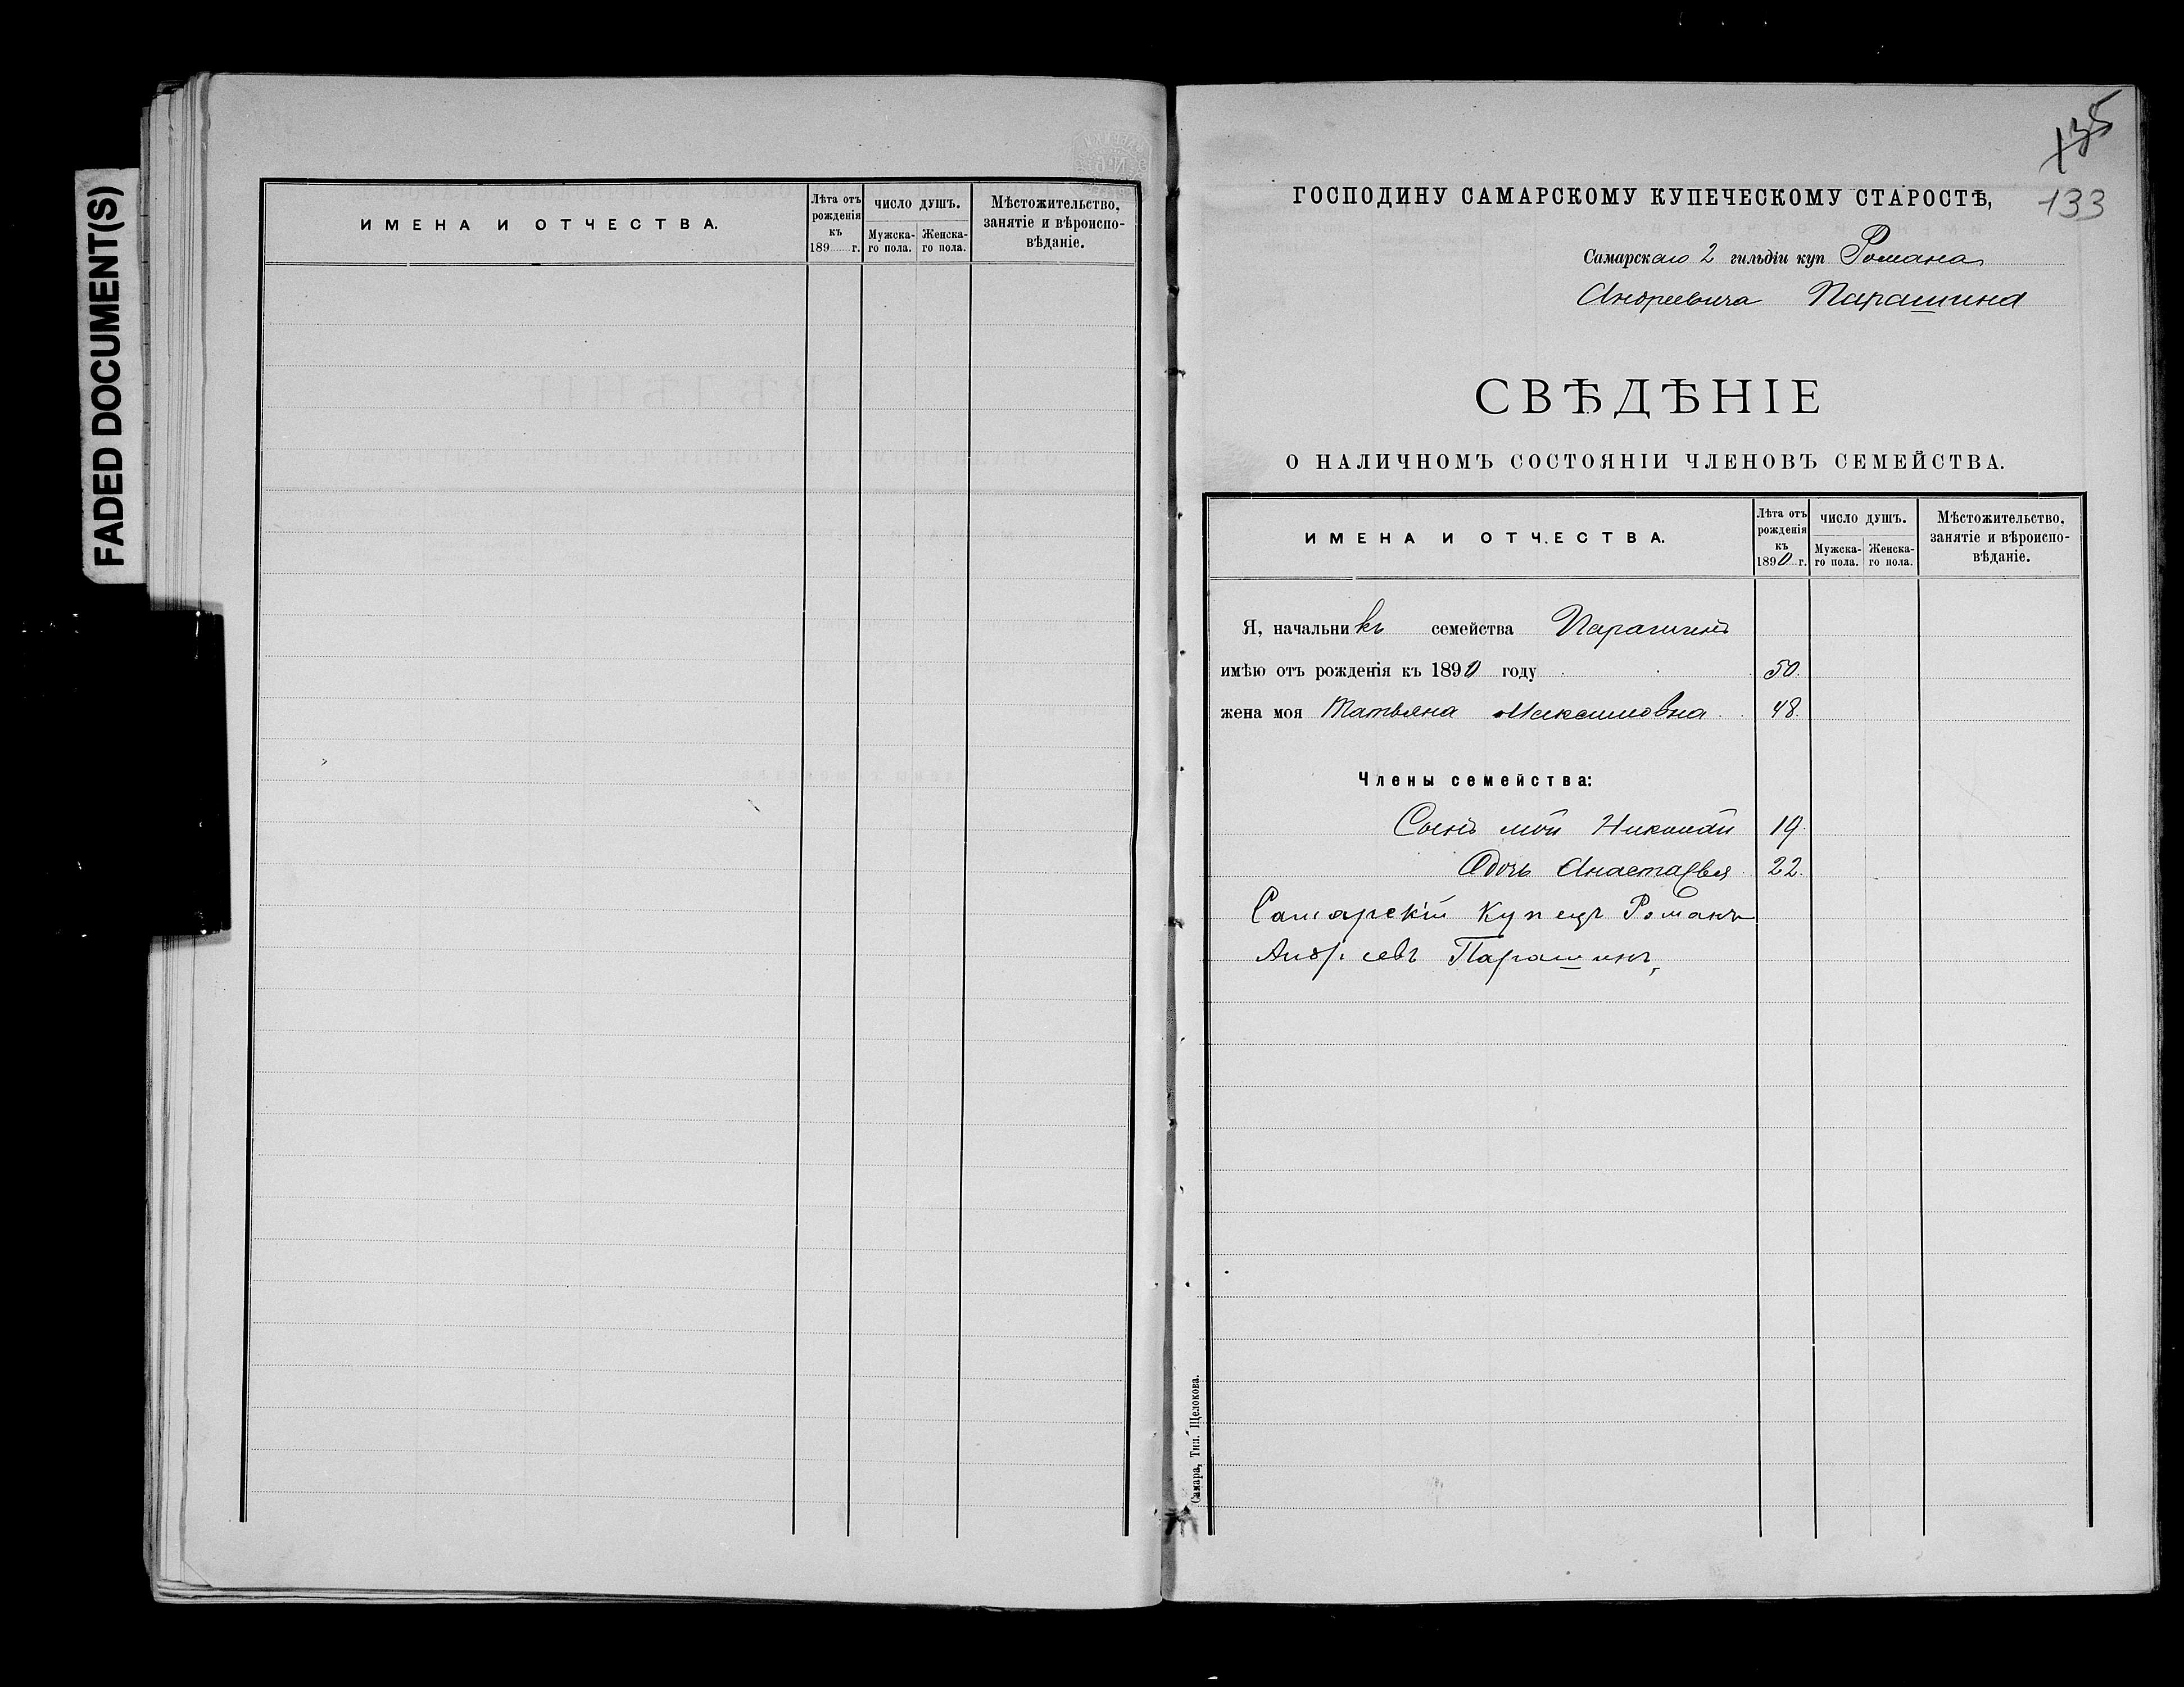 FADED DOCUMENT(S)
ИМЕНА И ОТЧЕСТВА.
Лѣта отъ рожденія къ 189 г.
ЧИСЛО ДУШЪ.
Мужска-го пола.
Женска-го пола.
Мѣстожительство, занятіе и вѣроиспо-вѣданіе.
135
133
ГОСПОДИНУ САМАРСКОМУ КУПЕЧЕСКОМУ СТАРОСТѢ,
Самарскаго 2 гильдіи куп Романа
Андреевича Парашина
СВѢДѢНІЕ
О НАЛИЧНОМЪ СОСТОЯНІИ ЧЛЕНОВЪ СЕМЕЙСТВА.
ИМЕНА И ОТЧЕСТВА.
Лѣта отъ рожденія къ 1890 г.
ЧИСЛО ДУШЪ.
Мужска-го пола.
Женска-го пола.
Мѣстожительство, занятіе и вѣроиспо-вѣданіе.
Я, начальникъ семейства Парашинъ
имѣю отъ рожденія къ 1890 году 50.
жена моя Татьяна Максимовна 48.
Члены семейства:
Сынъ мой Николай 19
Дочь Анастасья 22.
Самарскій Купецъ Романъ
Андреевъ Парашинъ,
Самара, Тип. Щелокова.